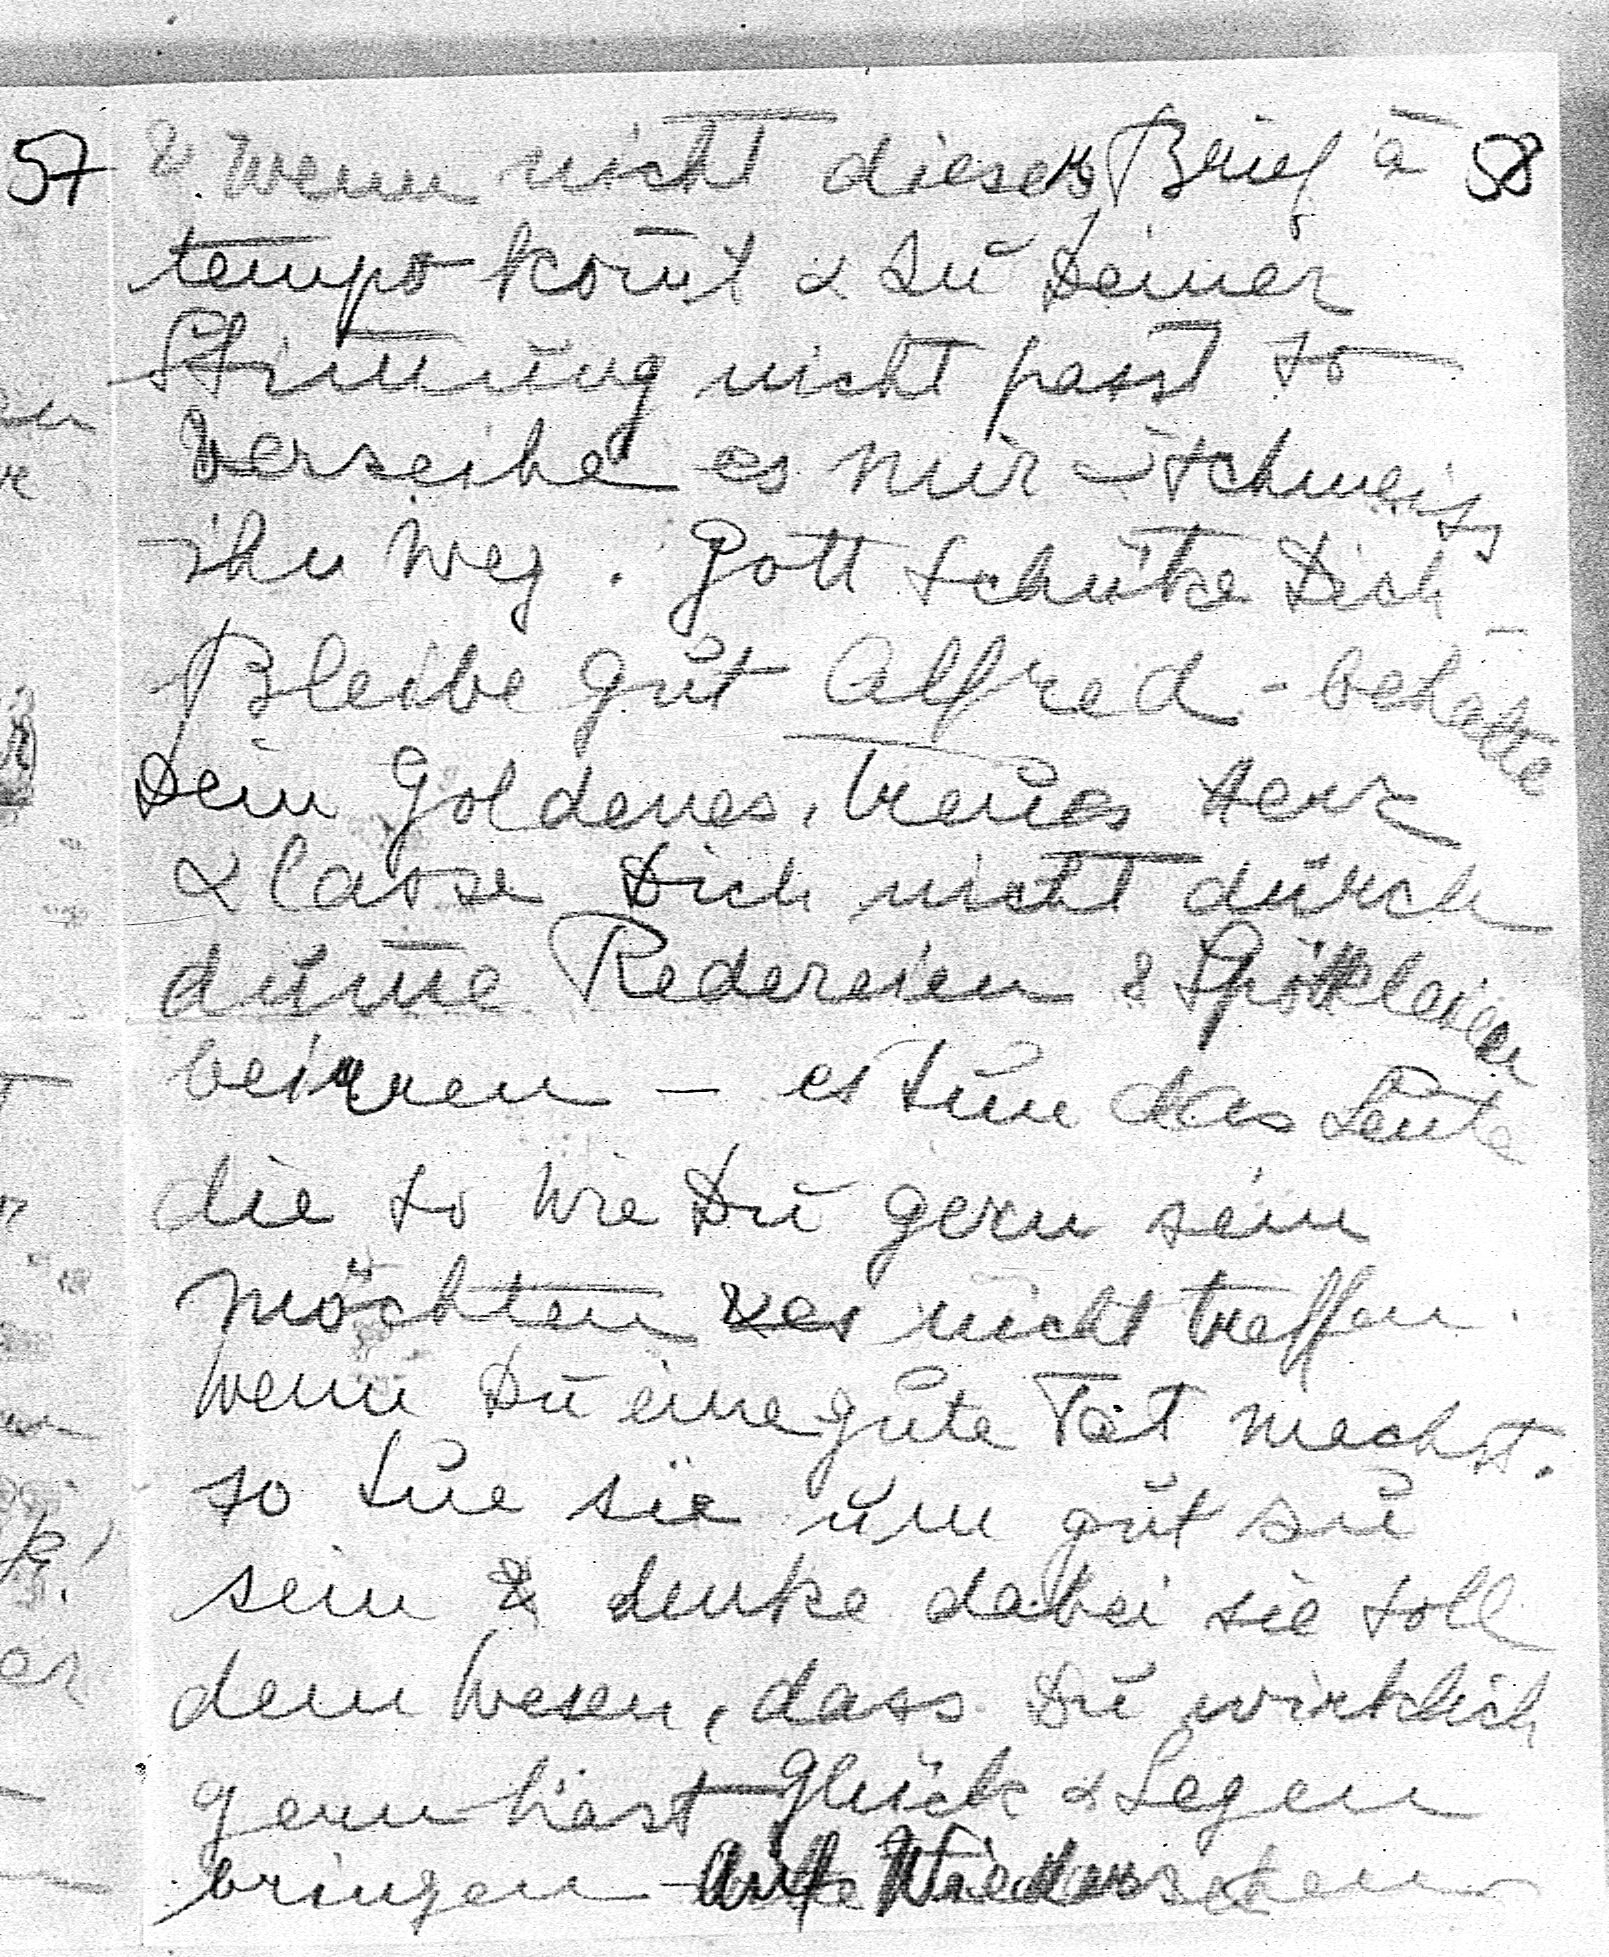 57 & wenn nicht dieser Brief a 58
tempo kom̄t & zu Deiner
Stim̄ung nicht passt so
verzeihe es mir & schmeiss
ihn weg. Gott schütze Dich -
Bleibe gut Alfred - behalte
Dein goldenes, treues Herz
& lasse Dich nicht durch
dum̄e Redereien &
beirren - es tun das Leute
die so wie Du gern sein
möchten & es nicht treffen.
wenn Du eine gute Tat machst.
so tue sie um gut zu
sein & denke dabei sie soll
dem Wesen, dass Du wirklich
gern hast Glück & Segen
bringen - Auf Wiedersehen